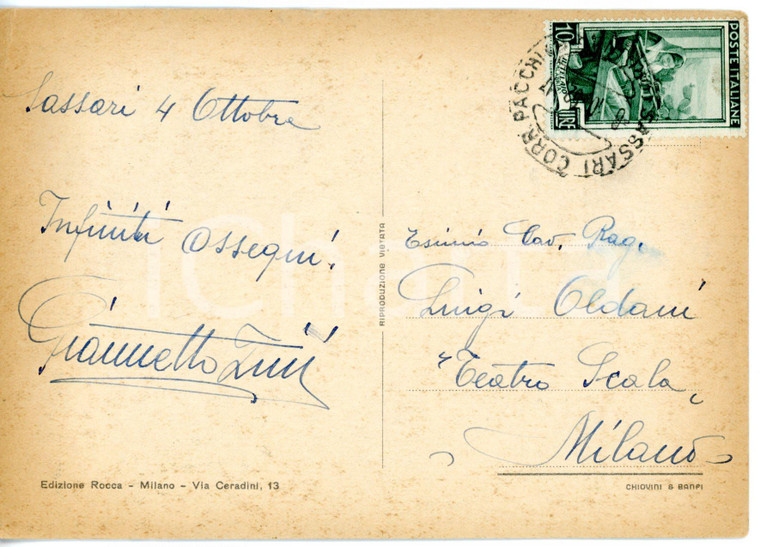 Sassari 4 Ottobre
Infiniti ossequi.
Giannetto Zini
Esimio Cav. Rag.
Luigi Oldani
"Teatro Scala"
Milano
RIPRODUZIONE VIETATA
Edizione Rocca - Milano - Via Ceradini, 13
CHIOVINI & BANFI
POSTE ITALIANE
10
LIRE
SASSARI CORR. PACCHI
iCharta